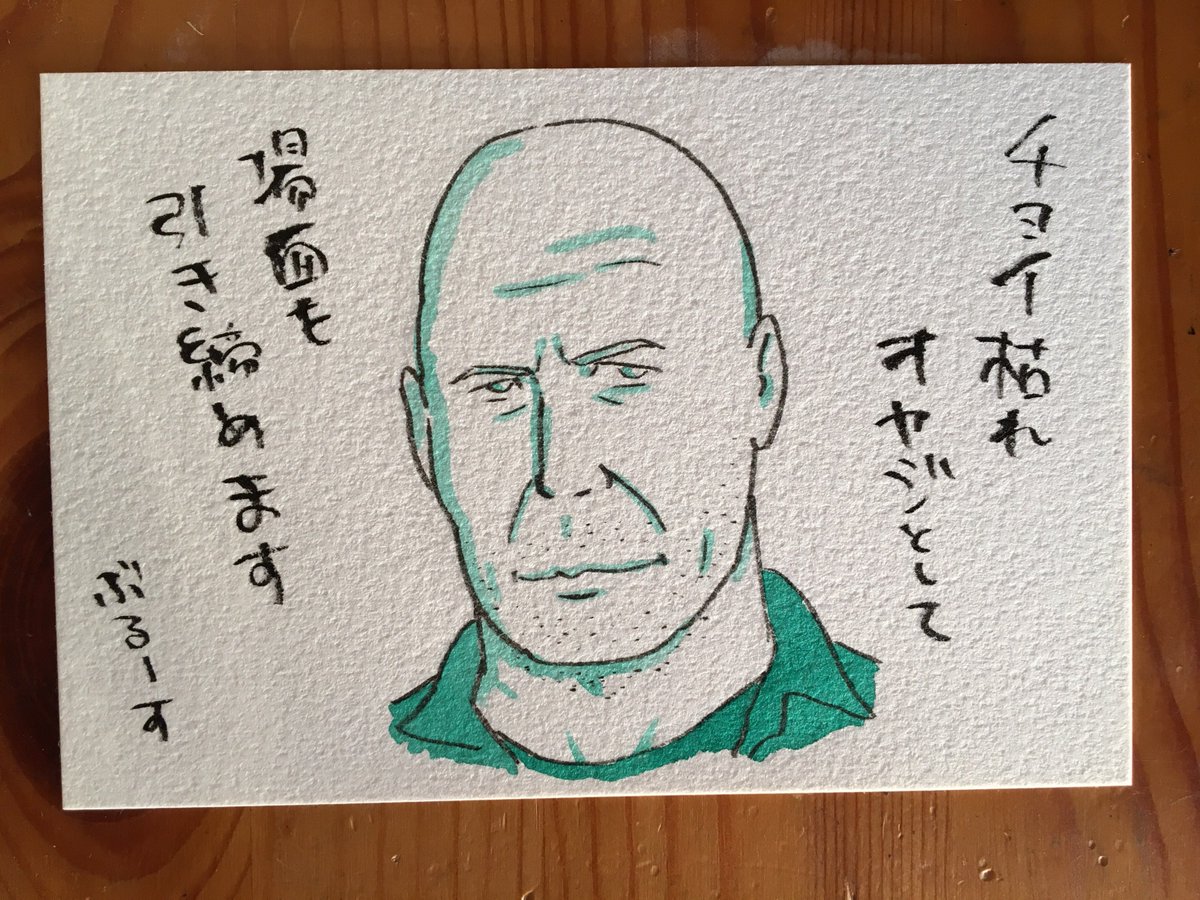 チョイ枯れ
オヤジとして
場面も
引き締めます
ぶるーす